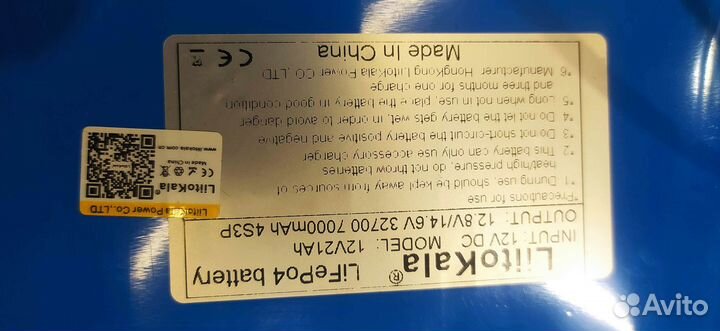 LiitoKala® LiFePo4 battery
INPUT: 12V DC MODEL: 12V21Ah
OUTPUT: 12.8V/14.6V 32700 7000mAh 4S3P
*Precautions for use
*1 During use, should be kept away from sources of
heat/high pressure, do not throw batteries
*2 This battery can only use accessory charger
*3 Do not short-circuit the battery positive and negative
*4 Do not let the battery gets wet, in order to avoid danger
*5 Long when not in use, place the battery in good condition
and three months for one charge
*6 Manufacturer HongKong LiitoKala Power CO.,LTD
Made In China
CE
LiitoKala Power Co.,LTD
LiitoKala®
CE
Made in China
www.liitokala.com.cn
Avito